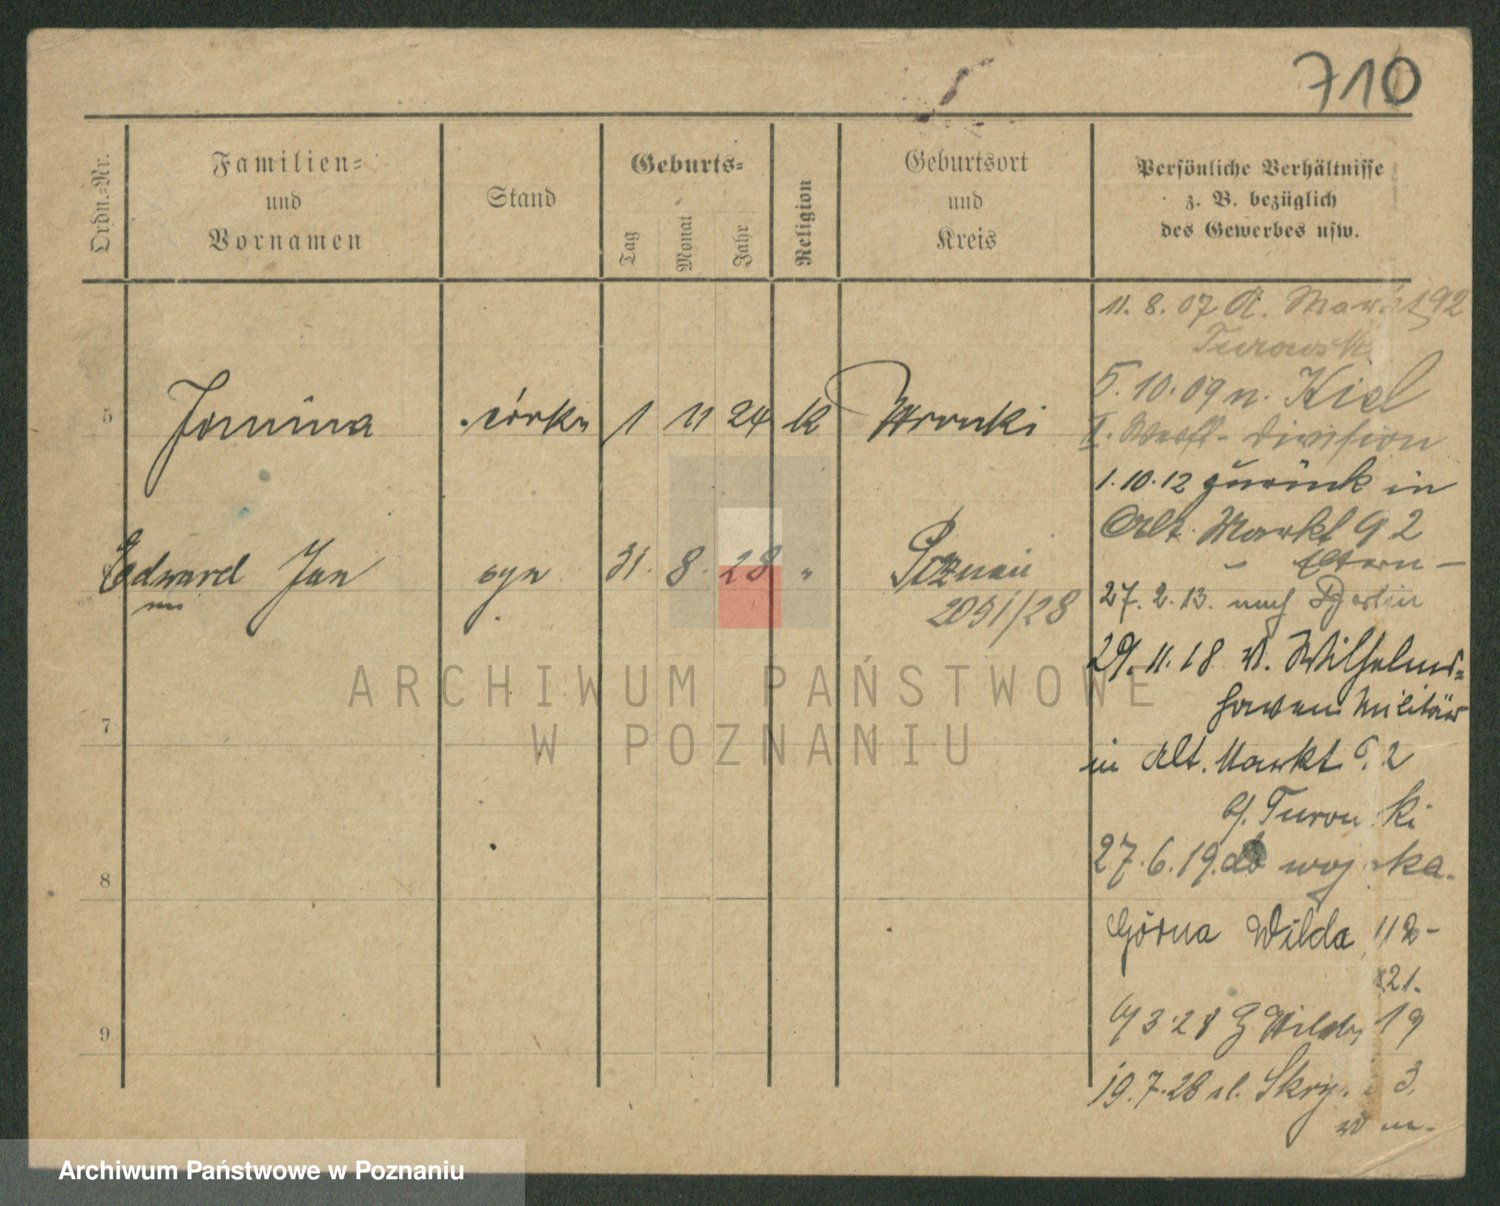 710
Ordn.-Nr.
Familien-
und
Vornamen
Stand
Geburts-
Tag
Monat
Jahr
Religion
Geburtsort
und
Kreis
Persönliche Verhältnisse
z. B. bezüglich
des Gewerbes usw.
5 Janina córka 1 11 24 k Wronki
Edward Jan syn 31. 8. 28 " Poznań
2051/28
7
8
9
11. 8. 07 A. Markt 92
Turowski
5.10.09 n. Kiel
II. Werft-Division
1.10.12 zurück in
Alt. Markt 92
Eltern
27.2.13. nach Berlin
29.11.18 v. Wilhelms-
haven Militär
in Alt. Markt 92
b/. Turowski
27.6.19. do wojska.
Górna Wilda 112-
21.
3.28 G Wilda 19
19.7.28 ul. Skry. 3.
w m.
ARCHIWUM PAŃSTWOWE
W POZNANIU
Archiwum Państwowe w Poznaniu